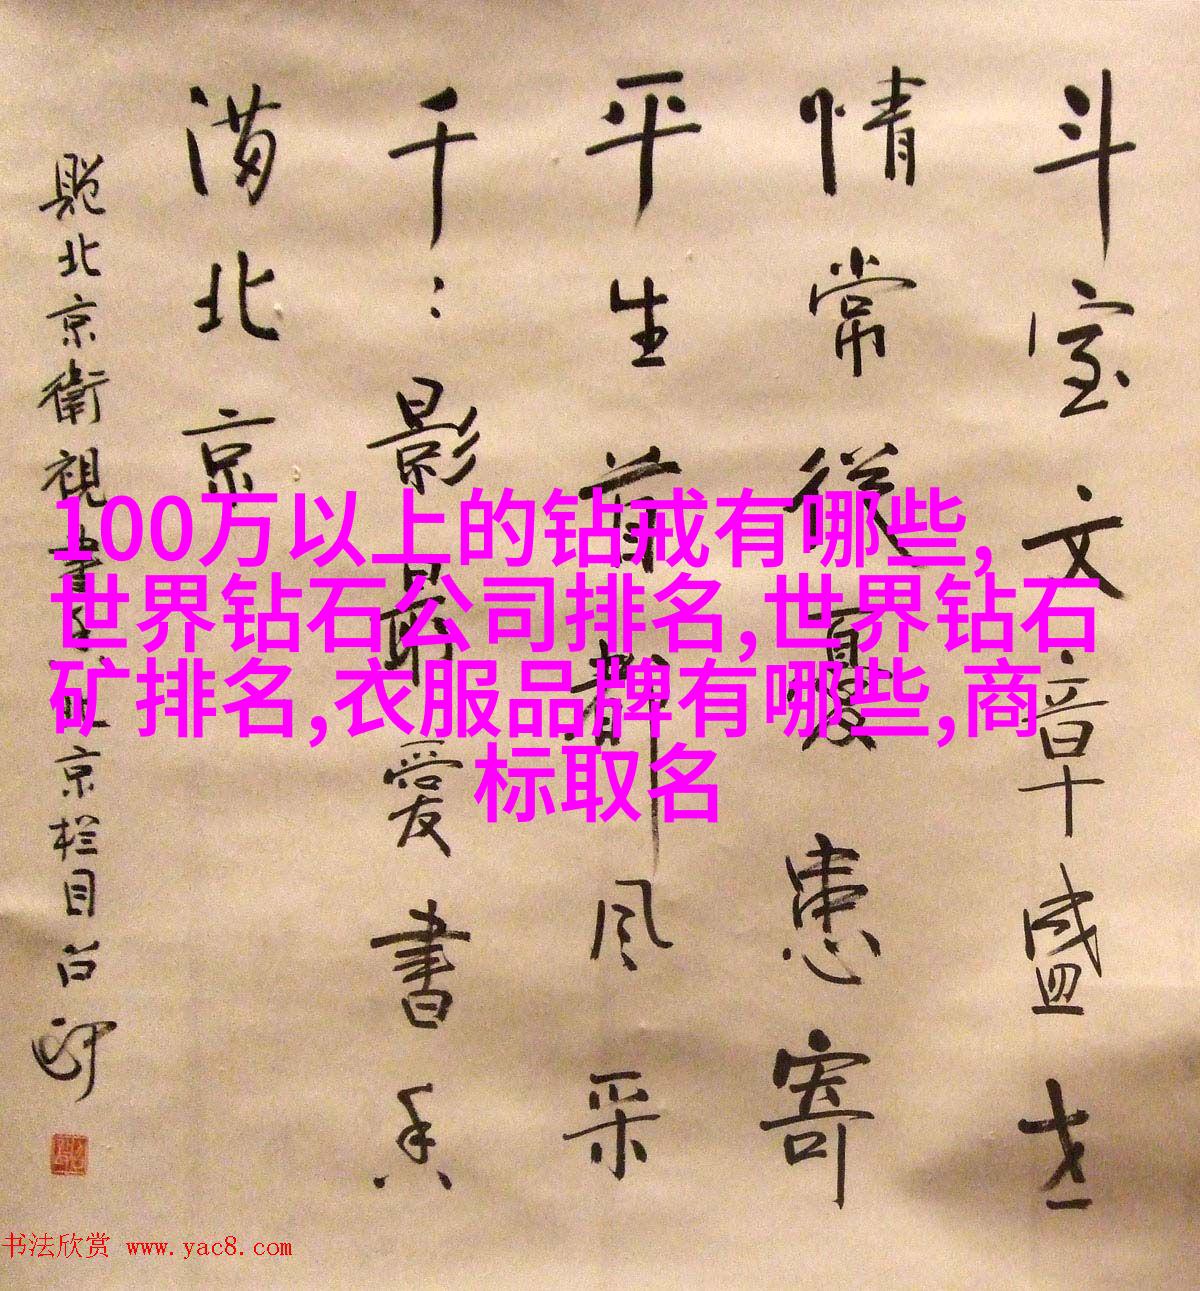 斗室文章盛世
情常從憂患寄
平生首都风采
千〻影最爱書香
满北京
北京衛視書香北京栏目
100万以上的钻戒有哪些,
世界钻石公司排名,世界钻石
矿排名,衣服品牌有哪些,商
标取名
书法欣赏 www.yac8.com